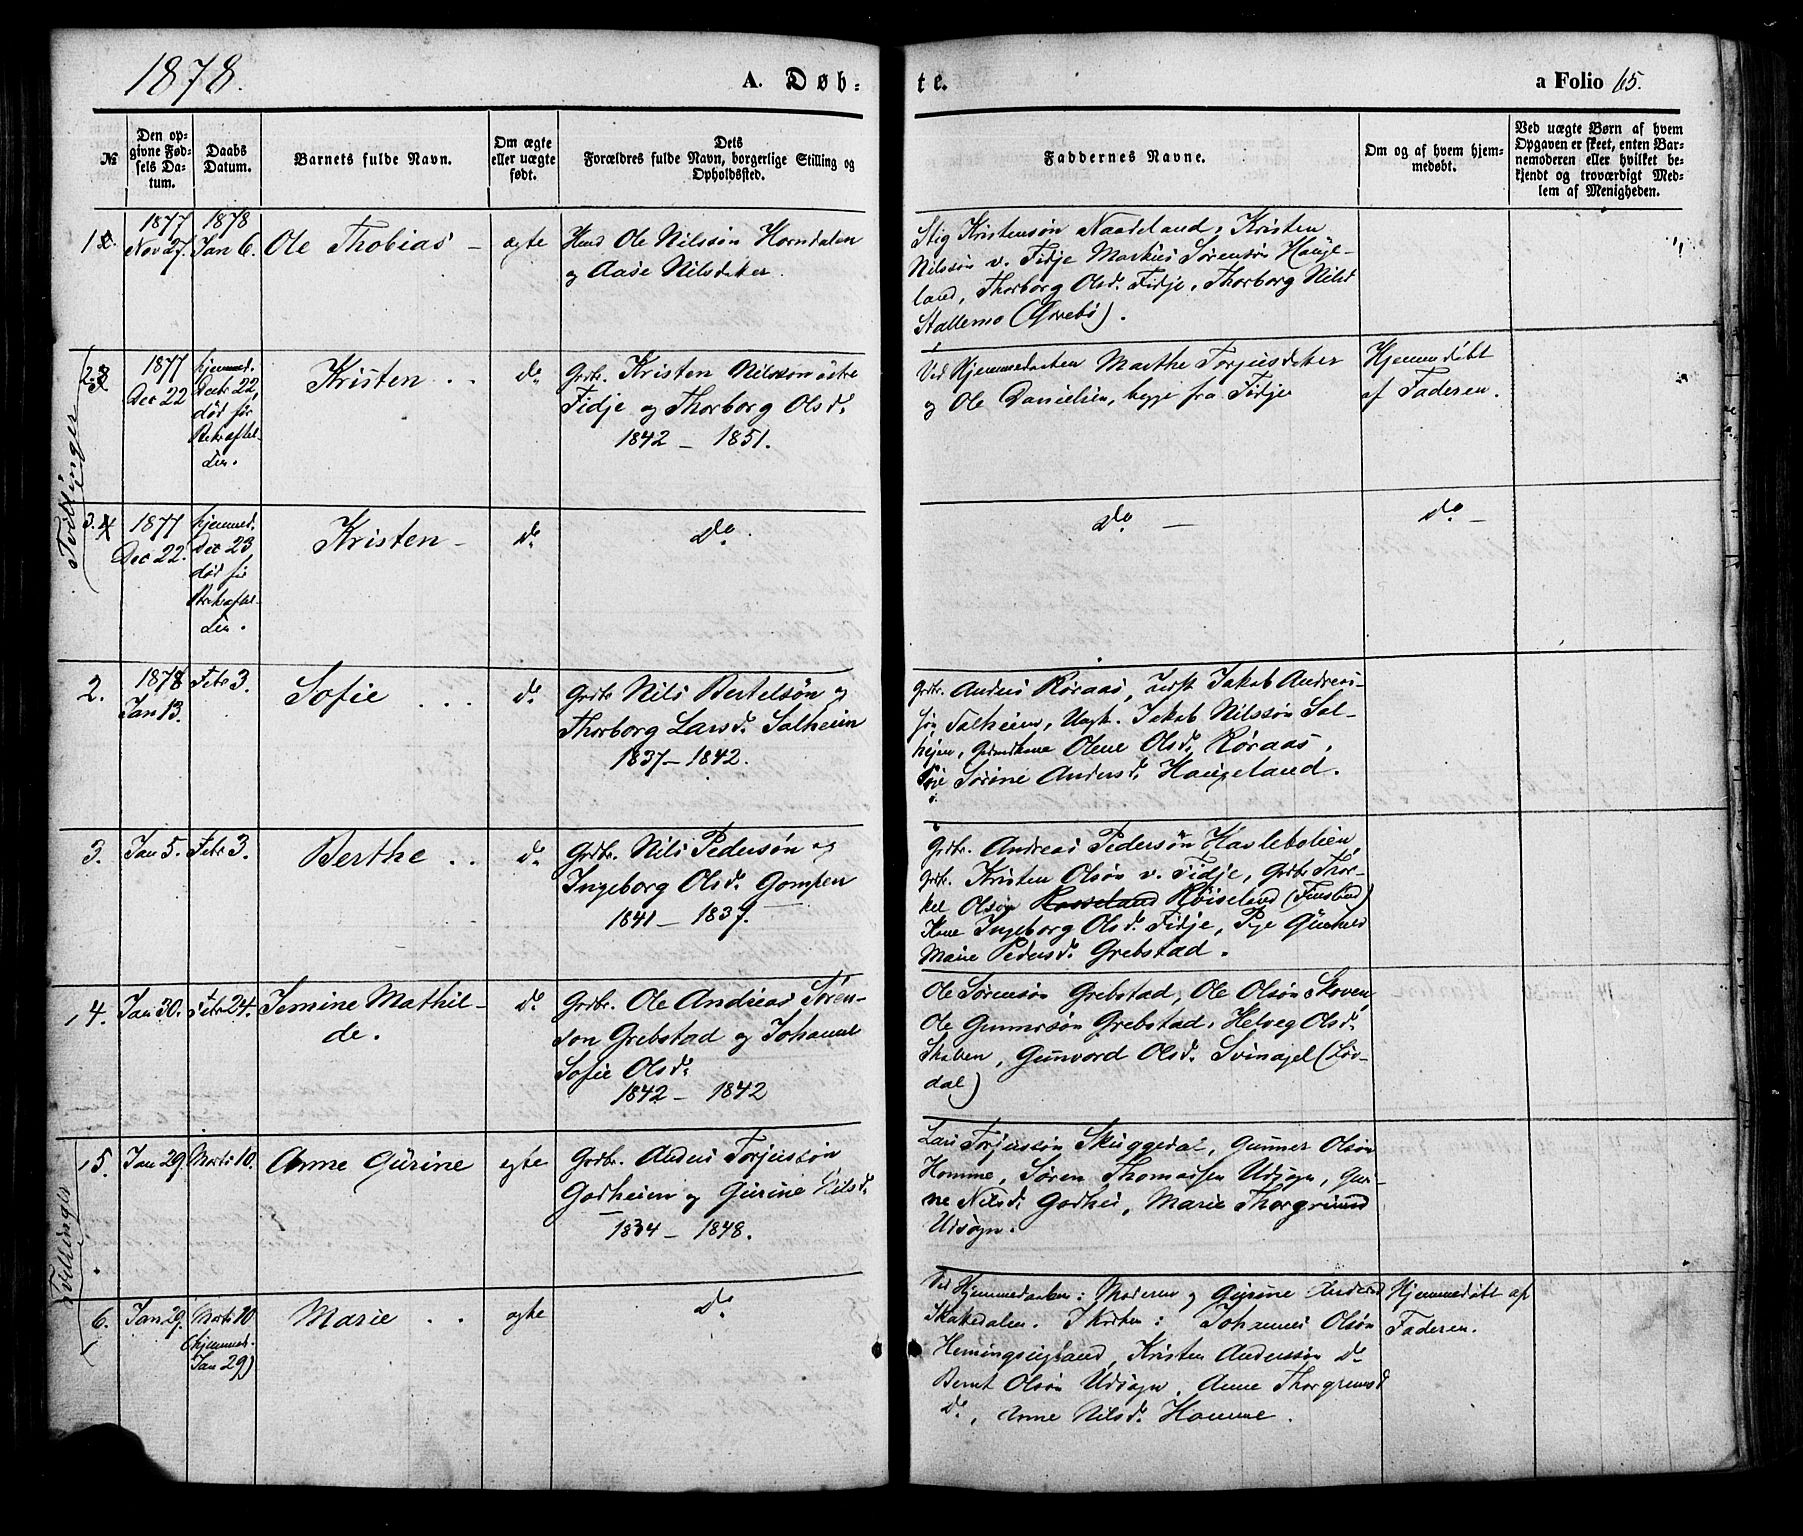 1878.
A. Døb-
te.
a Folio 65.
№
Den op-
givne Fød-
sels Da-
tum.
Daabs
Datum.
Barnets fulde Navn.
Om ægte
eller uægte
født.
Dets
Forældres fulde Navn, borgerlige Stilling og
Opholdssted.
Faddernes Navne.
Om og af hvem hjem-
medøbt.
Ved uægte Børn af hvem
Opgaven er skeet, enten Bar-
nemoderen eller hvilket be-
kjendt og troværdigt Med-
lem af Menigheden.
1
1877
Nov 27.
1878
Jan 6.
Ole Thobias –
ægte
Ole Nilssøn Horndalen
og Aase Nilsdater.
Stig Kristensøn Naadeland, Kristen
Nilssøn v. Fidje Markus Sørensøn Hauge-
land, Thorborg Olsd. Fidje, Thorborg Nilsd
Stallemo (Øvrebø).
Tvillinger
2.
1877
Dec 22
hjemmed.
Decbr 22,
død før
Bekræftel-
sen.
Kristen . .
do
Grdbr. Kristen Nilssøn østre
Fidje og Thorborg Olsd.
1842 – 1851.
Ved Hjemmedaaben Marthe Torjusdater
og Ole Danielsen, begge fra Fidje
Hjemmedøbt
af Faderen.
3.
1877
Dec 22.
hjemmed.
Dec 23
død før
Bekræftel-
sen.
Kristen –
do
do.
do –
do –
2.
1878
Jan 13.
Febr 3.
Sofie . . .
do
Grdbr Nils Bertelsøn og
Thorborg Larsd. Solheim
1837 – 1842.
Grdbr. Anders Røraas, Jakob Andreas-
søn Solheim, Ungk. Jakob Nilssøn Sol-
heim, Olene Olsd. Røraas,
Pige Sørine Andersd. Haugeland.
3.
Jan 5.
Febr 3.
Berthe . .
do
Grdbr. Nils Pedersøn og
Ingeborg Olsd. Gompen
1841 – 1837.
Grdbr. Andreas Pedersøn Havlebolien,
Grdbr. Kristen Olsøn v. Fidje, Grdbr Thor-
kel Olsøn Rosseland Røiseland (Finsland)
Kone Ingeborg Olsd. Fidje, Pige Gunhild
Marie Pedersd. Grebstad.
4.
Jan 30.
Febr 24.
Jemine Mathil-
de.
do
Grdbr. Ole Andreas Søren-
søn Grebstad og Johanne
Sofie Olsd.
1842 – 1842
Ole Sørensøn Grebstad, Ole Olsøn Skoven,
Ole Gunnersøn Grebstad, Helveg Olsd.
Skoven, Gunvord Olsd. Svinagel (Løv-
dal)
Tvillinger
5.
Jan 29.
Marts 10.
Anne Gurine
egte
Grdbr. Anders Torjussøn
Godheien og Gurine Nilsd.
1834 – 1848.
Lars Torjussøn Skuggedal, Gunner Olsøn
Homme, Søren Thomassen Udsøgn, Gur-
ne Nilsd. Godhei, Marie Thorgrimsd
Udsøgn.
6.
Jan 29.
Marts 10
(hjemmed.
Jan 29)
Marie . .
egte
do
Ved Hjemmedaaben: Moderen og Gurine Andersd
Skakedalen. I Kirken: Johannes Olsøn
Hemingsigland, Kristen Anderssøn do
Bernt Olsøn Udsøgn, Anne Thorgrimsd
do, Anne Nilsd. Homme.
Hjemmedøbt af
Faderen.